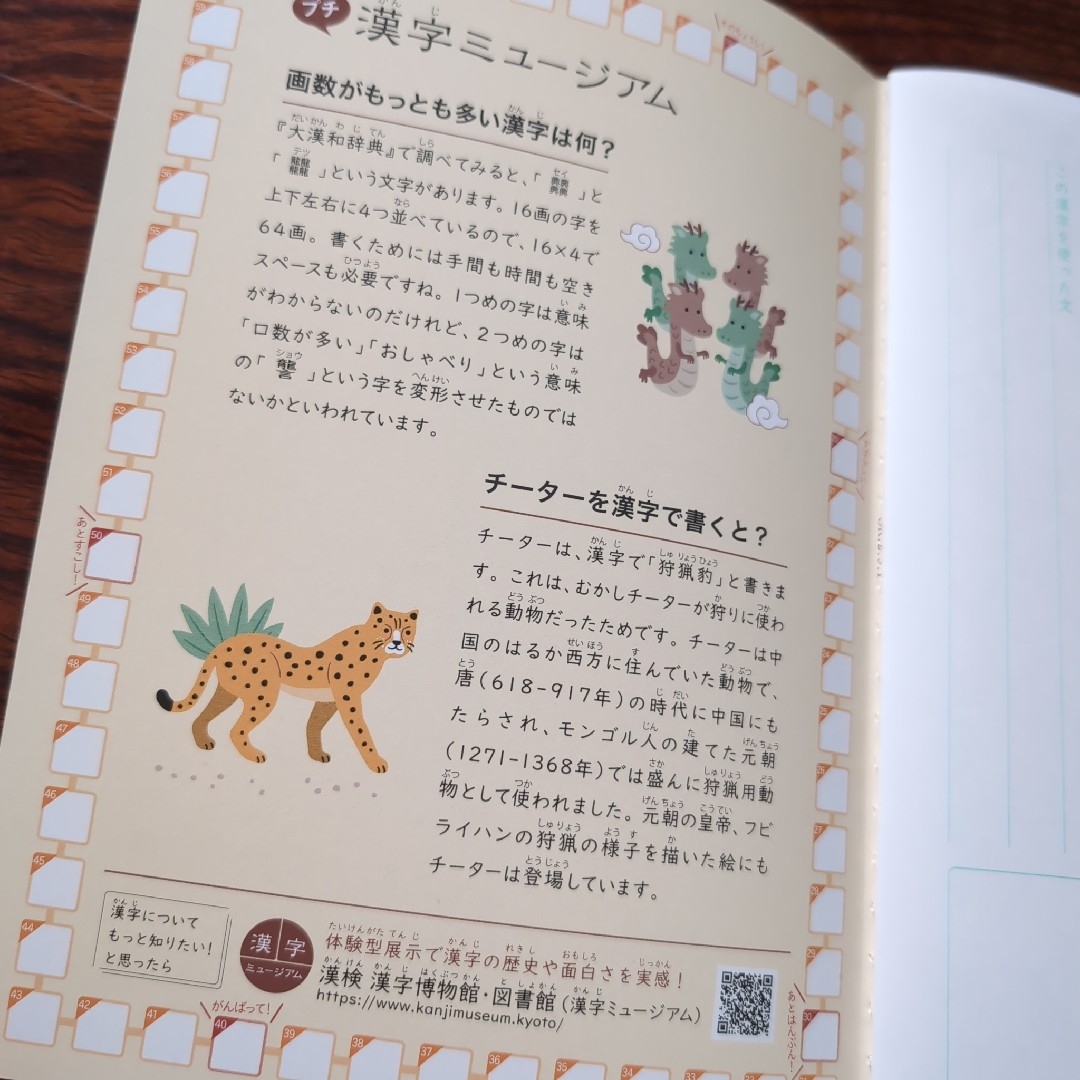 プチ
漢字ミュージアム
画数がもっとも多い漢字は何?
『大漢和辞典』で調べてみると、「𠔻」と
「𪚥」という文字があります。16画の字を
上下左右に4つ並べているので、16×4で
64画。書くためには手間も時間も空き
スペースも必要ですね。1つめの字は意味
がわからないのだけれど、2つめの字は
「口数が多い」「おしゃべり」という意味
の「讋」という字を変形させたものでは
ないかといわれています。
チーターを漢字で書くと?
チーターは、漢字で「狩猟豹」と書きま
す。これは、むかしチーターが狩りに使わ
れる動物だったためです。チーターは中
国のはるか西方に住んでいた動物で、
唐(618-917年)の時代に中国にも
たらされ、モンゴル人の建てた元朝
(1271-1368年)では盛んに狩猟用動
物として使われました。元朝の皇帝、フビ
ライハンの狩猟の様子を描いた絵にも
チーターは登場しています。
漢字について
もっと知りたい!
と思ったら
漢字
ミュージアム
体験型展示で漢字の歴史や面白さを実感!
漢検 漢字博物館・図書館(漢字ミュージアム)
https://www.kanjimuseum.kyoto/
59
58
57
56
55
54
53
52
51
50
あとすこし!
49
48
47
46
45
44
43
42
41
40
がんばって!
39
38
37
36
35
30
あとはんぶん!
この漢字を使った文